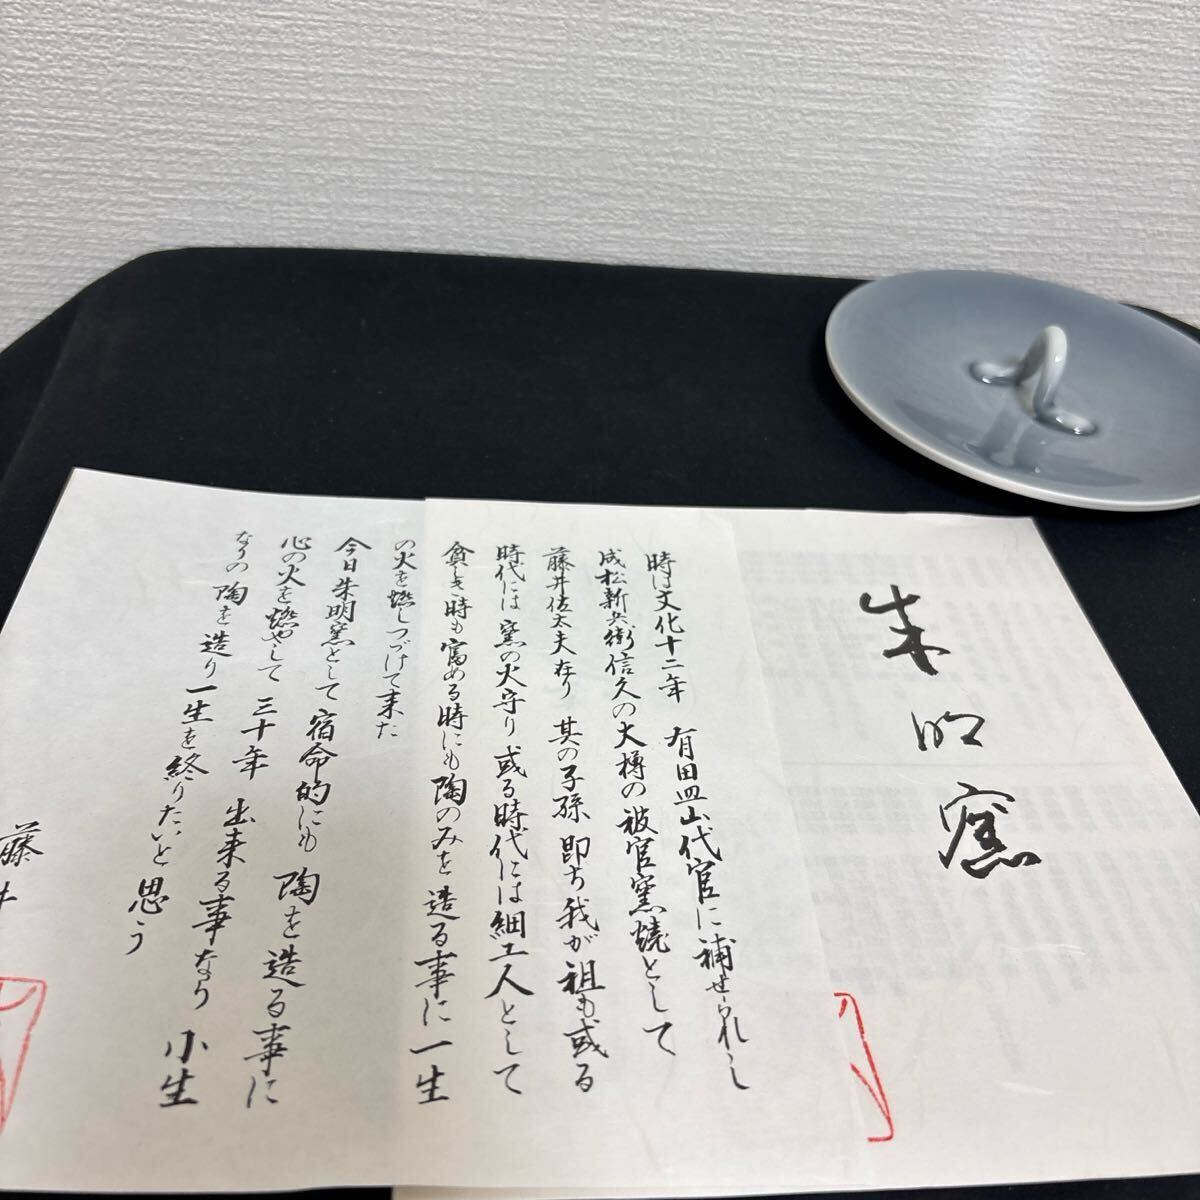 朱明窯
時は文化十二年 有田皿山代官に補せられし
成松新兵衛信久の大樽の被官窯焼として
藤井佐太夫在り 其の子孫即ち我が祖も或る
時代には窯の火守り或る時代には細工人として
貧しき時も富める時にも陶のみを造る事に一生
の火を燃しつづけて来た
今日朱明窯として宿命的にも陶を造る事に
心の火を燃やして 三十年 出来る事なり 小生
なりの陶を造り一生を終りたいと思う
藤井